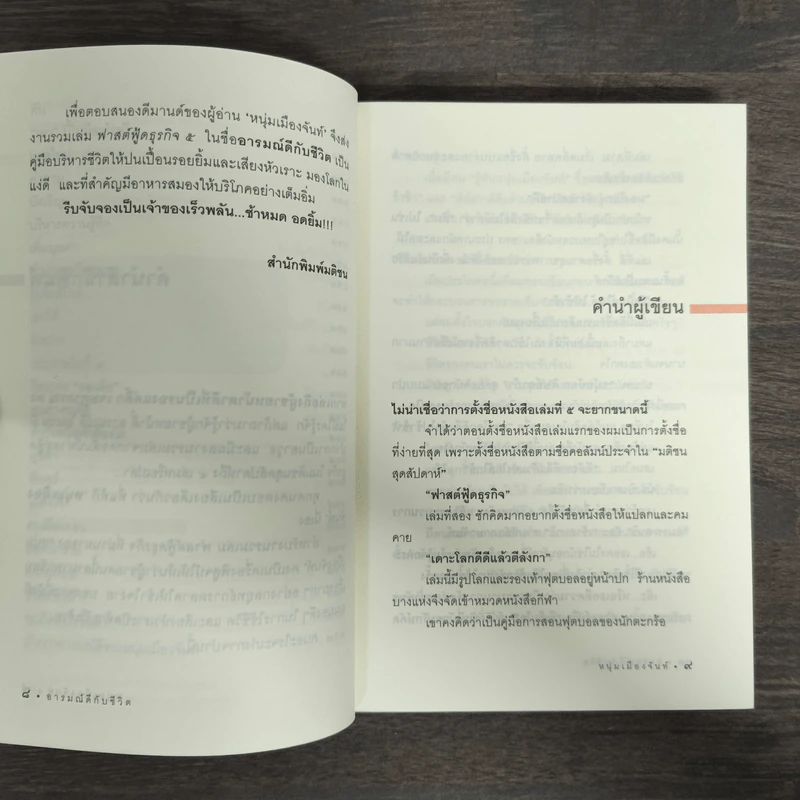 เพื่อตอบสนองดีมานด์ของผู้อ่าน ‘หนุ่มเมืองจันท์’ จึงส่ง
งานรวมเล่ม ฟาสต์ฟู้ดธุรกิจ ๕ ในชื่ออารมณ์ดีกับชีวิต เป็น
คู่มือบริหารชีวิตให้ปนเปื้อนรอยยิ้มและเสียงหัวเราะ มองโลกใน
แง่ดี และที่สำคัญมีอาหารสมองให้บริโภคอย่างเต็มอิ่ม
รีบจับจองเป็นเจ้าของเร็วพลัน...ช้าหมด อดยิ้ม!!!
สำนักพิมพ์มติชน
๘ • อารมณ์ดีกับชีวิต
คำนำผู้เขียน
ไม่น่าเชื่อว่าการตั้งชื่อหนังสือเล่มที่ ๕ จะยากขนาดนี้
จำได้ว่าตอนตั้งชื่อหนังสือเล่มแรกของผมเป็นการตั้งชื่อ
ที่ง่ายที่สุด เพราะตั้งชื่อหนังสือตามชื่อคอลัมน์ประจำใน “มติชน
สุดสัปดาห์”
“ฟาสต์ฟู้ดธุรกิจ”
เล่มที่สอง ชักคิดมากอยากตั้งชื่อหนังสือให้แปลกและคม
คาย
“เตาะโลกดีดีแล้วตีลังกา”
เล่มนี้มีรูปโลกและรองเท้าฟุตบอลอยู่หน้าปก ร้านหนังสือ
บางแห่งจึงจัดเข้าหมวดหนังสือกีฬา
เขาคงคิดว่าเป็นคู่มือการสอนฟุตบอลของนักตะกร้อ
หนุ่มเมืองจันท์ • ๙